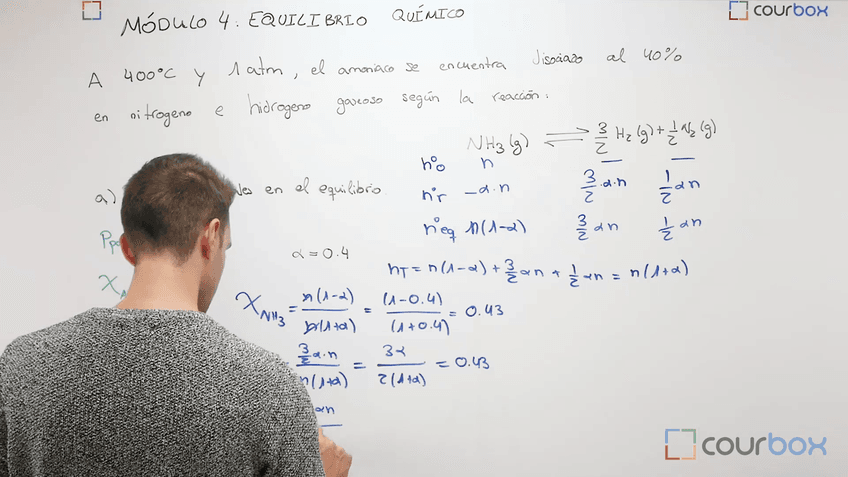 courbox
MÓDULO 4. EQUILIBRIO QUÍMICO
A 400°C y 1 atm, el amoniaco se encuentra disociado al 40%
en nitrogeno e hidrogeno gaseoso según la reacción:
NH3(g) ⇌ 3/2 H2(g) + 1/2 N2(g)
nº0 n — —
nºr -α·n 3/2·α·n 1/2 αn
a) en el equilibrio.
nºeq n(1-α) 3/2 αn 1/2 αn
α=0.4
nT = n(1-α) + 3/2 αn + 1/2 αn = n(1+α)
χNH3 = n(1-α)/n(1+α) = (1-0.4)/(1+0.4) = 0.43
3/2 α·n/n(1+α) = 3α/2(1+α) = 0.43
αn
courbox